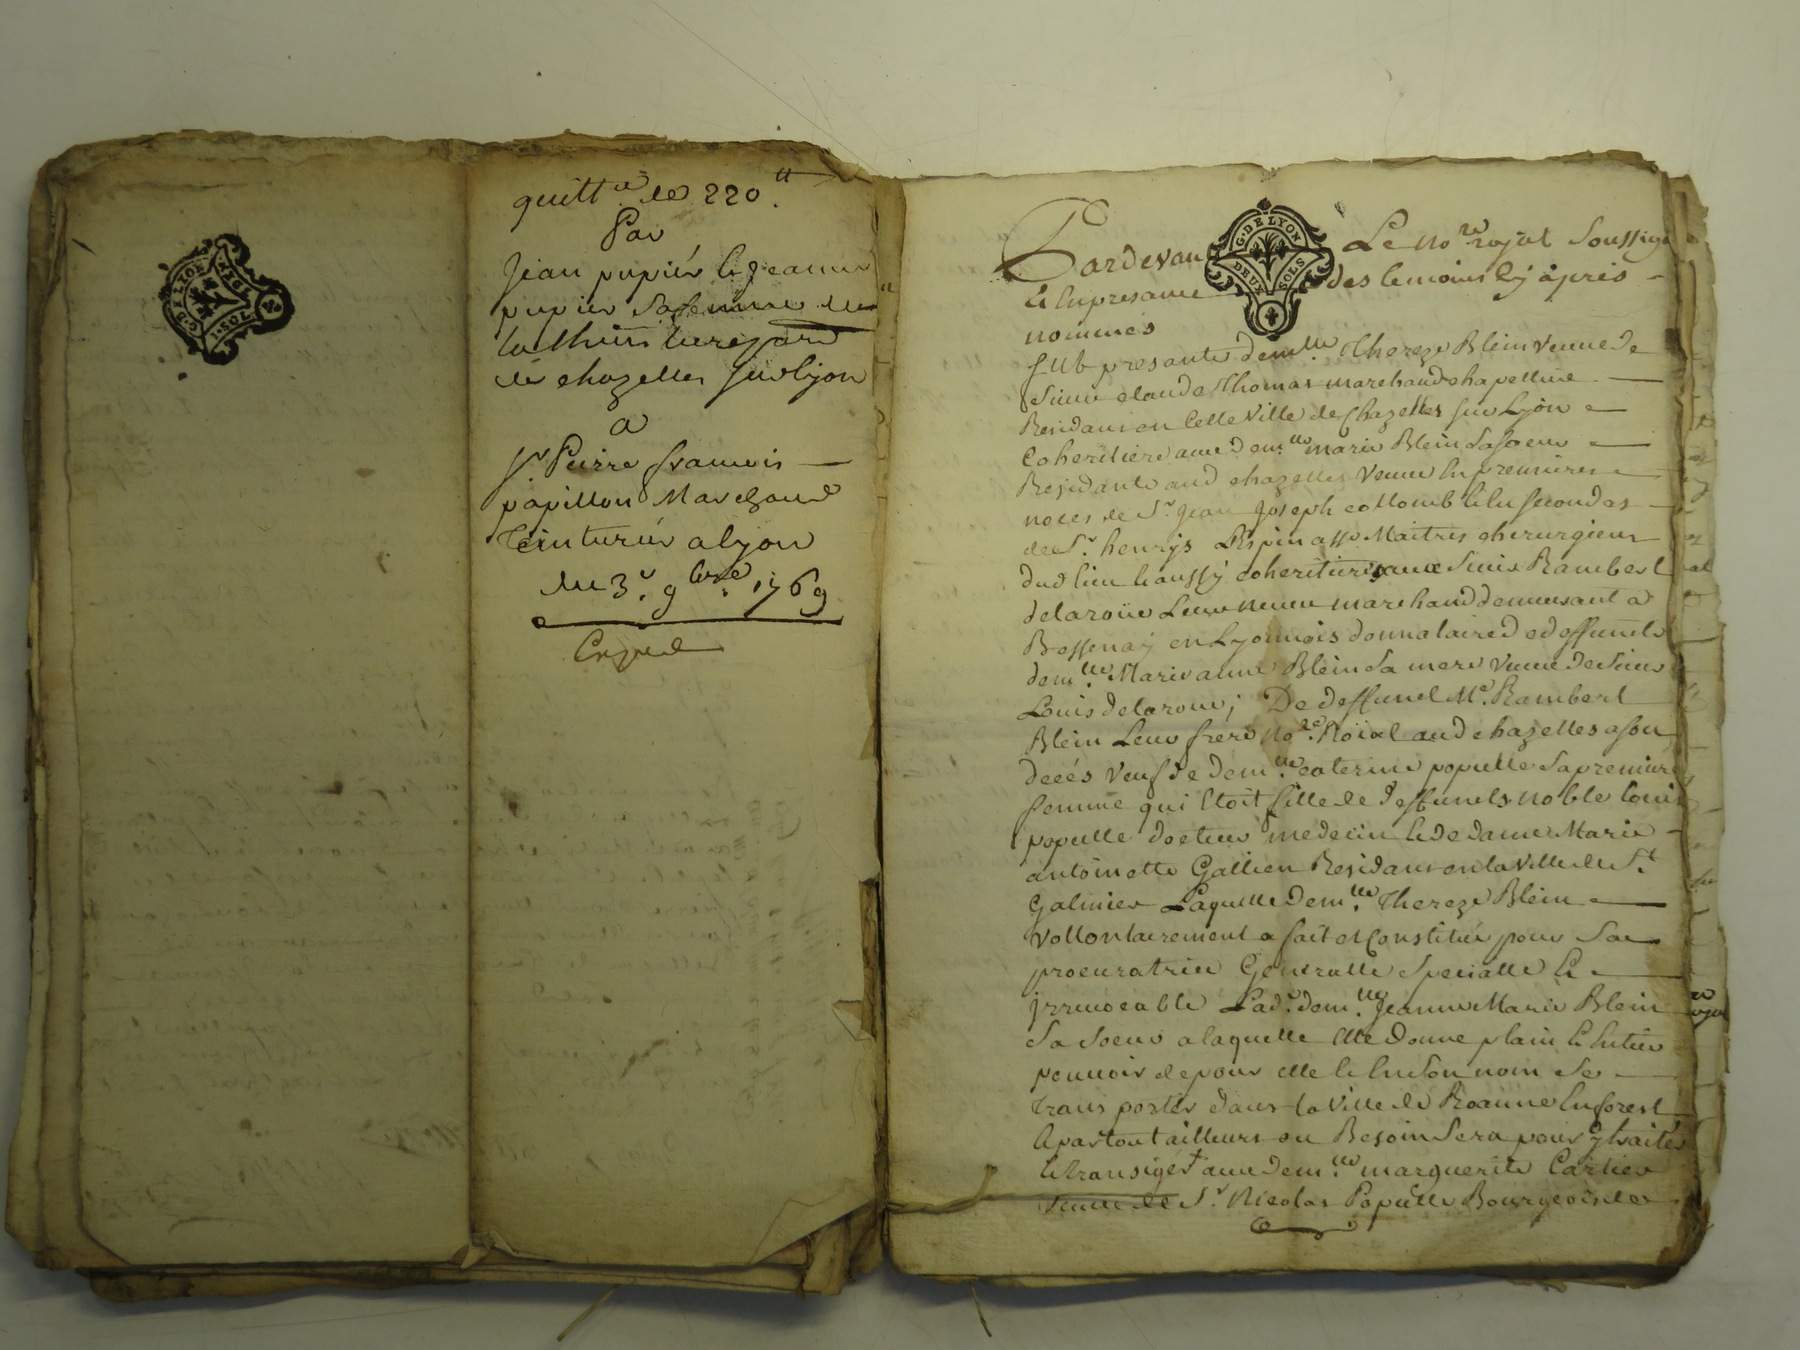 G. DE LYON
1. SOL
quitt.ce de 220.tt
Par
Jean pupiér & jeanne
pupiér Sa femme de
de chazelles sur lyon
a
Sr Pierre francois
papillon Marchand
Teinturiér a lyon
du 3.e 9bre. 1769
Par devant Le no.re royal Soussigné
G. DE LYON
DEUX SOLS
& En presance des temoins Cy àprés
nommés
fut presante demlle. Thereze Blein veuve de
Sieur claude Thomas marchand chapellier
Residant en Cette Ville de Chazelles sur Lyon
Coheritiere avec demlle. marie Blein Sa soeur
Residante aud chazelles veuve En premieres
noces de Sr. jean Joseph collomb & En secondes
de Sr. henrÿs Lespinasse Maitres chirurgiens
dud lieu & aussÿ coheritieres avec Sieur Rambert
delaroüe Leur neveu marchand demeurant a
Bessenaÿ en Lyonnois donnataire de deffuncte
demlle. Marie anne Blein Sa mere veuve de Sieur
Louis delaroue; De deffunct Me. Rambert
Blein Leur frere no.re Roïal aud chazelles a son
décés veuf de demlle. caterine populle Sa premiere
femme qui Etoit fille de deffuncts noble Louis
populle docteur medecin & de dame Marie
antoinette Gallien Residans en la ville de St
Galmier Laquelle demlle. Thereze Blein
vollontairement a fait et Constitué pour Sa
procuratrice Généralle Specialle &
jrrevocable Lad.e demlle. Jeanne Marie Blein
Sa Soeur a laquelle Elle donne plain & Entier
pouvoir de pour elle & En Son nom Se
Transporter dans la ville de Roanne En forest
& partout ailleurs ou Besoin Sera pour ÿ traiter
& transigér avec demlle. marguerite Cartier
veuve de Sr. Nicolas Populle Bourgeois de